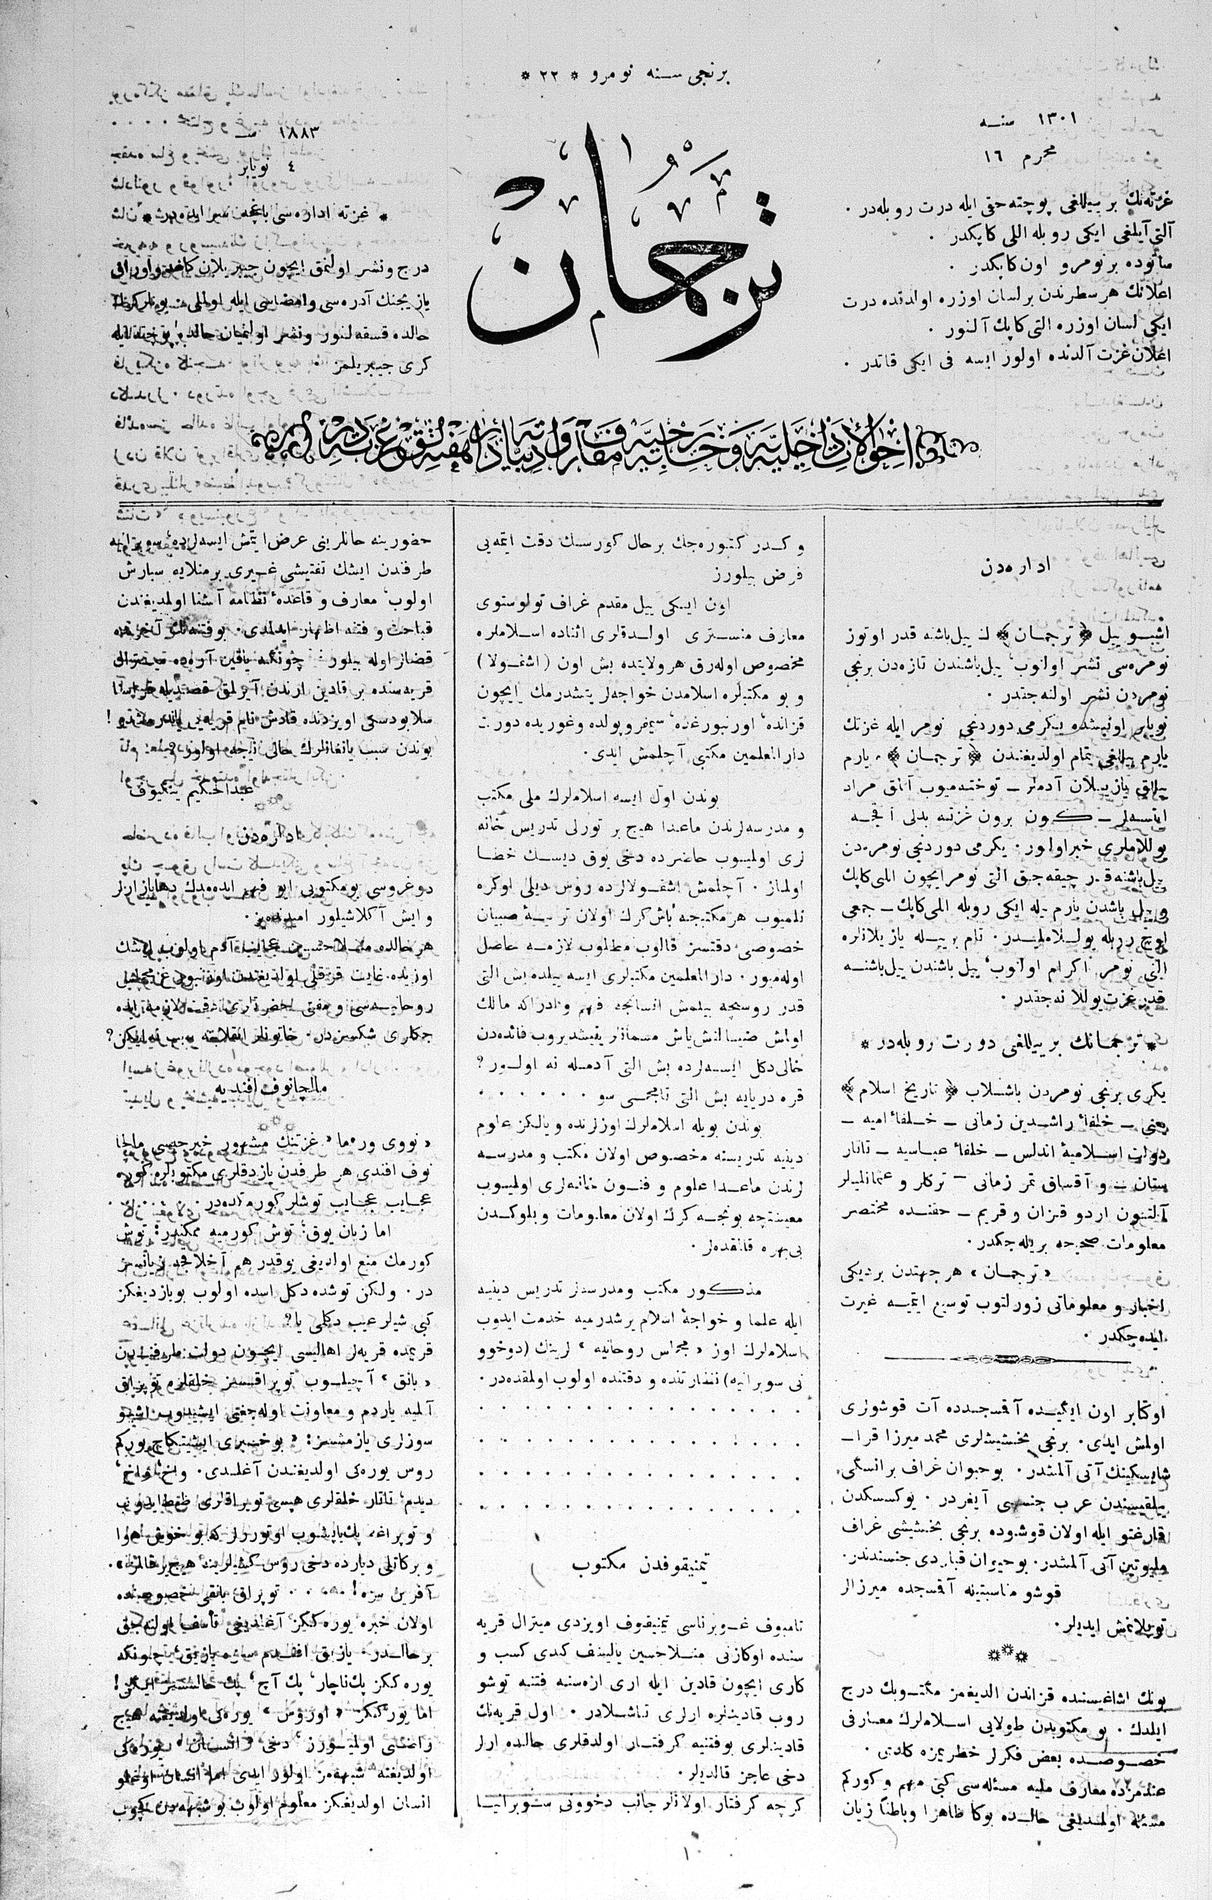 برنجی سنه نومرو * ٢٢ *
١٣٠١ سنه
محرم ١٦
غزته‌نك بر ییللغی پوچته حقی ایله درت روبله‌در .
آلتی آیلغی ایکی روبله اللی کاپکدر .
صاتوده بر نومرو اون کاپکدر .
اعلانك هر سطرندن بر لسان اوزره اولدقده درت
ایکی لسان اوزره التی کاپك آلنور .
اعلان غزت آلدنده اولور ایسه فی ایکی قاتدر .
ترجمان
١٨٨٣ سنه
٤ نویابر
* غزته اداره‌سی باغچه سرایده‌در *
درج و نشر اولنمق ایچون جبریلان کاغد و اوراق
یازیجنك آدره‌سی و امضاسی ایله اولملی .
حالده قسقه‌لنور و نشر اولنمیان
کری جیبریلمز
احوالات داخلیه و خارجیه معارف و ادبیاته دائر هفته‌لق غزته‌در
اداره‌دن
اشبو ییل ﴿ ترجمان ﴾ ییل باشنه قدر اوتوز
نومره‌سی نشر اولنوب ییل باشندن تازه‌دن برنجی
نومردن نشر اولنه‌جقدر .
نویابر اونیسنده یکرمی دوردنجی نومر ایله غزتنك
یارم ییللغی تمام اولدیغندن ﴿ ترجمان ﴾ ه یارم
ییللق یازییلان آدملر – توختمیوب آلمق مراد
ایتسه‌لر – کون برون غزته بدلی آقچه
یوللاملری خیر اولور . یکرمی دوردنجی نومره‌دن
ییل باشنه قدر چیقه‌جق التی نومر ایچون اللی کاپك
و ییل باشدن یارم ییله ایکی روبله اللی کاپك – جمعی
اوچ روبله یوللاملیدر . تام بر ییله یازیلانلره
التی نومر اکرام اولنوب ییل باشندن ییل باشنه
قدر غزت یوللانه‌جقدر .
* ترجمانك بر ییللغی دورت روبله‌در *
یکرمی برنجی نومردن باشلاب ﴿ تاریخ اسلام ﴾
یعنی – خلفاء راشدین زمانی – خلفاء امیه –
دولت اسلامیهٔ اندلس – خلفاء عباسیه – تاتار
ستان – و آقساق تمر زمانی – ترکلر و عثمانلیلر
آلتون اردو قزان و قریم – حقنده مختصر
معلومات صحیحه بریله‌جکدر .
« ترجمان » هر جهتدن بردیکی
اخبار و معلوماتی زورلتوب توسیع ایتمیه غیرت
ایده‌جکدر .
اوکتابر اون ایکیده آقسجدده آت قوشوری
اولمش ایدی . برنجی بخشیشلری محمد میرزا قرا–
شایسکینك آتی آلمشدر . بو حیوان غراف برانسکی
ییلقیسندن عرب جنسی آیغردر . یوکسکدن
قارغتو ایله اولان قوشوده برنجی بخشیشی غراف
آتی آلمشدر . بو حیوان قباردی جنسندندر .
قوشو مناسبتینه آقسجده میرزالر
توپلانمش ایدیلر .
بونك اشاغیسنده قزاندن الدیغمز مکتوبك درج
ایلدك . بو مکتوبدن طولایی اسلاملرك معارفی
خصوصنده بعض فکرلر خطریمزه کلدی .
عندمزده معارف ملیه مسئله‌سی کبی مهم و کورکم
مسئله اولمدیغی حالده بوکا ظاهرا و باطنا زیان
و کدر کتوره‌جك بر حال کورسك دقت ایتمه‌یی
فرض بیلورز
اون ایکی ییل مقدم غراف تولوستوی
معارف منستری اولدقلری اثناده اسلاملره
مخصوص اوله‌رق هر ولایتده بش اون ( اشقولا )
و بو مکتبلره اسلامدن خواجه‌لر یتشدرمك ایچون
قزانده، اورنبورغده، سیمفروپولده و غوریده دورت
دارالمعلمین مکتبی آچلمش ایدی .
بوندن اول ایسه اسلاملرك ملی مکتب
و مدرسه‌لرندن ماعدا هیچ بر تورلی تدریس خانه
لری اولمیوب حاضرده دخی یوق دیسك خطا
اولماز . آچلمش اشقولالرده روس دیلی اوکره
تلمیوب هر مکتبجه باش کرك اولان تربیهٔ صبیان
خصوصی دقتسز قالوب مطلوب لازمه حاصل
اوله‌میور . دار المعلمین مکتبلری ایسه ییلده بش التی
قدر روسچه بیلمش انسانجه فهم و ادراکه مالك
اولمش ضیالنش یاش مسلمانلر یتیشدیروب فائده‌دن
خالی دکل ایسه‌لرده بش التی آدمله نه اولور ؟
قره دریایه بش التی تامچی سو . . . . . .
بوندن بویله اسلاملرك اوزلرنده و یالکز علوم
دینیه تدریسنه مخصوص اولان مکتب و مدرسه
لرندن ماعدا علوم و فنون خانه‌لری اولمیوب
معیشتچه بونجه کرك اولان معلومات و بیلوکدن
بی بهره قالقده‌لر .
مذکور مکتب و مدرسه‌لر تدریس دینیه
ایله علما و خواجهٔ اسلام یرشدرمیه خدمت ایدوب
اسلاملرك اوز « مجلس روحانیه » لرینك ( دوخوو
نی سوبرانیه ) نظارتنده و دقتنده اولوب اولمقده‌در .
. . . . . . . . . . . . . .
. . . . . . . . . . . . . .
. . . . . . . . . . . . . .
. . . . . . . . . . . . . .
تمنیقوفدن مکتوب
تامبوف غوبرناسی تمنیقوف اویزدی میترال قریه
سنده اوکازنی منلا حسین یالینف کندی کسب و
کاری ایچون قادین ایله اری ازه‌سنه فتنه توشو
روب قادینلره ارلری تاشلادر . اول قریه‌نك
قادینلری بو فتنیه کرفتار اولدقلری حالده ارلر
دخی عاجز قالدیلر .
کرچه کرفتار اولانلر جانب دخوونی سوبرانیا
حضورینه حاللرینی عرض ایتمش ایسه‌لرده
طرفندن ایشك تفتیشی غیری بر منلایه سپارش
اولوب معارف و قاعدهٔ نظامه آشنا اولمدیغندن
قباحت و فتنه اظهار ایدلمدی . بو فتنه‌نك آخر
قضالر اوله بیلور : چونکه یاقین آره‌ده
قریه‌سنده بر قادین ارندن آیرلمق قصدیله
سلابودسکی اویزدنده قادش نام قریه‌یی
بوندن سبب یانغانلرك حالی نیجه اولور ؟
عبدالحکیم ینکیوف
اداره‌دن
دوغروسی بو مکتوبی ایو فهم ایده‌مدك دها یازارلر
و ایش آکلاشیلور امیدنده‌یز .
هر حالده منلا حسین عجایب آدم اولوب ایشك
اوزیده غایت قزقلی اولدیغندن اورنبورغ مجلس
روحانیه‌سی و مفتی حضرتلری دقت
جکلری شکسزدر . خاتونلر انقلابنه سبب نه ایکن ؟
مالجانوف افندیه
« نووی ورما » غزتنك مشهور خبرجیسی مالجا
نوف افندی هر طرفدن یازدقلری مکتوبلره کوره
عجایب عجایب توشلر کورمکده‌در . . . . .
اما زیان یوق، توش کورمیه ممکندر؛ توش
کورمك منع اولدیغی یوقدر هم آخلاقجه زیانسز
در . ولکن توشده دکل اسده اولوب بو یازدیغکز
کبی شیلر عیب دکلمی یا ؟
قریمده قریه‌لر اهالیسی ایچون دولت طرفیندن
« بانق » آچیلوب توپراقسز خلقلره توپراق
آلمیه یاردم و معاونت اوله‌جغنی ایشیدوب اشبو
سوزلری یازمشسز : « بو خبری ایشیتکاچ یورکم
روس یوره‌کی اولدیغندن آغلدی . واخ واخ ،
دیدم ، تاتار خلقلری هپسی توپراقلری ضبط ایدوب
و توپراغه پك یاپشوب اوتوررلر که بو خوش هوا
و برکاتلی دیارده دخی روس کیشیلرینه هیچ یر قالمز » .
آفرین سزه ! . . . توپراق بانقی خصوصنده
اولان خبره یوره‌ککز آغلدیغی تأسف اولنه‌جق
بر حالدر . یازیق افندم سزه یازیق ، چونکه
یوره‌ککز پك ناچار ، پك آج ، پك حالسز ایکن !
اما یورککز « اوروس » یوره‌کی اولدیغنه هیچ
راضی اولمیورز ، دخی « انسان » یوره‌کی
اولدیغنه شبهه‌مز اولور ایدی اما انسان اوغلو
انسان اولدیغکز معلوم اولوب بو شبهه‌دن کچوب